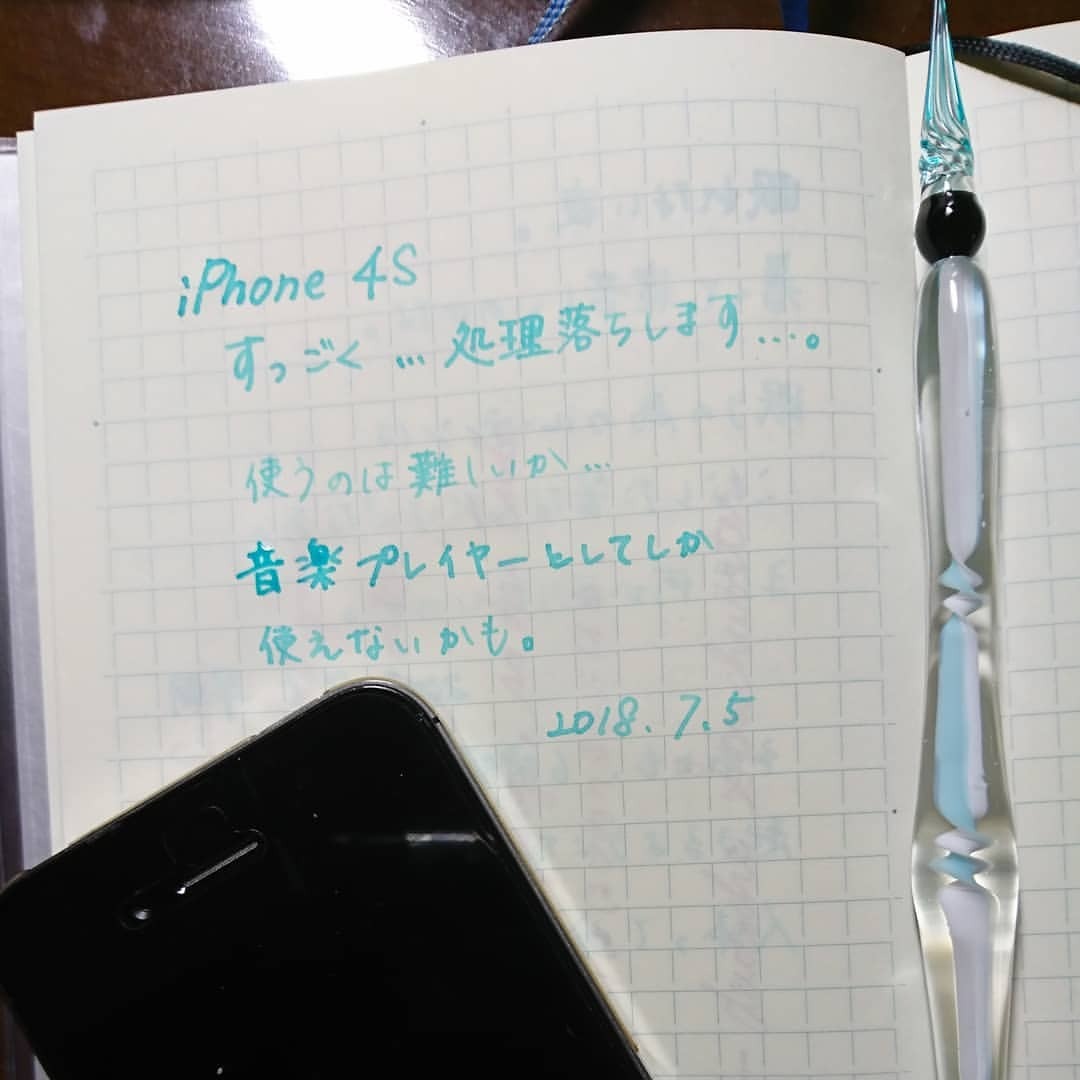 iPhone 4S
すっごく…処理落ちします….。
使うのは難しいか…
音楽プレイヤーとしてしか
使えないかも。
2018.7.5